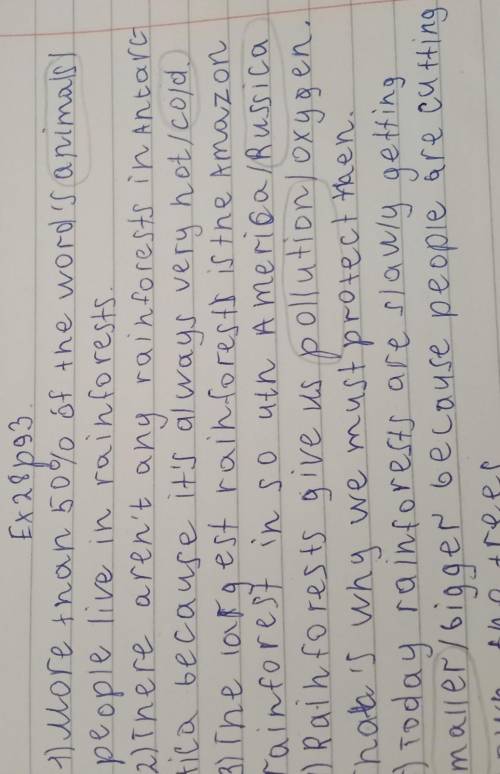 Ex28p93.
1) More than 50% of the word's animals/
people live in rainforests.
2) There aren't any rainforests in Antarc-
tica because it's always very hot/cold.
3) The largest rainforests is the Amazon
rainforest in south America/Russica
) Rainforests give us pollution/oxygen.
That's why we must protect then.
) Today rainforests are slawly getting
maller/bigger because people are cutting
the trees